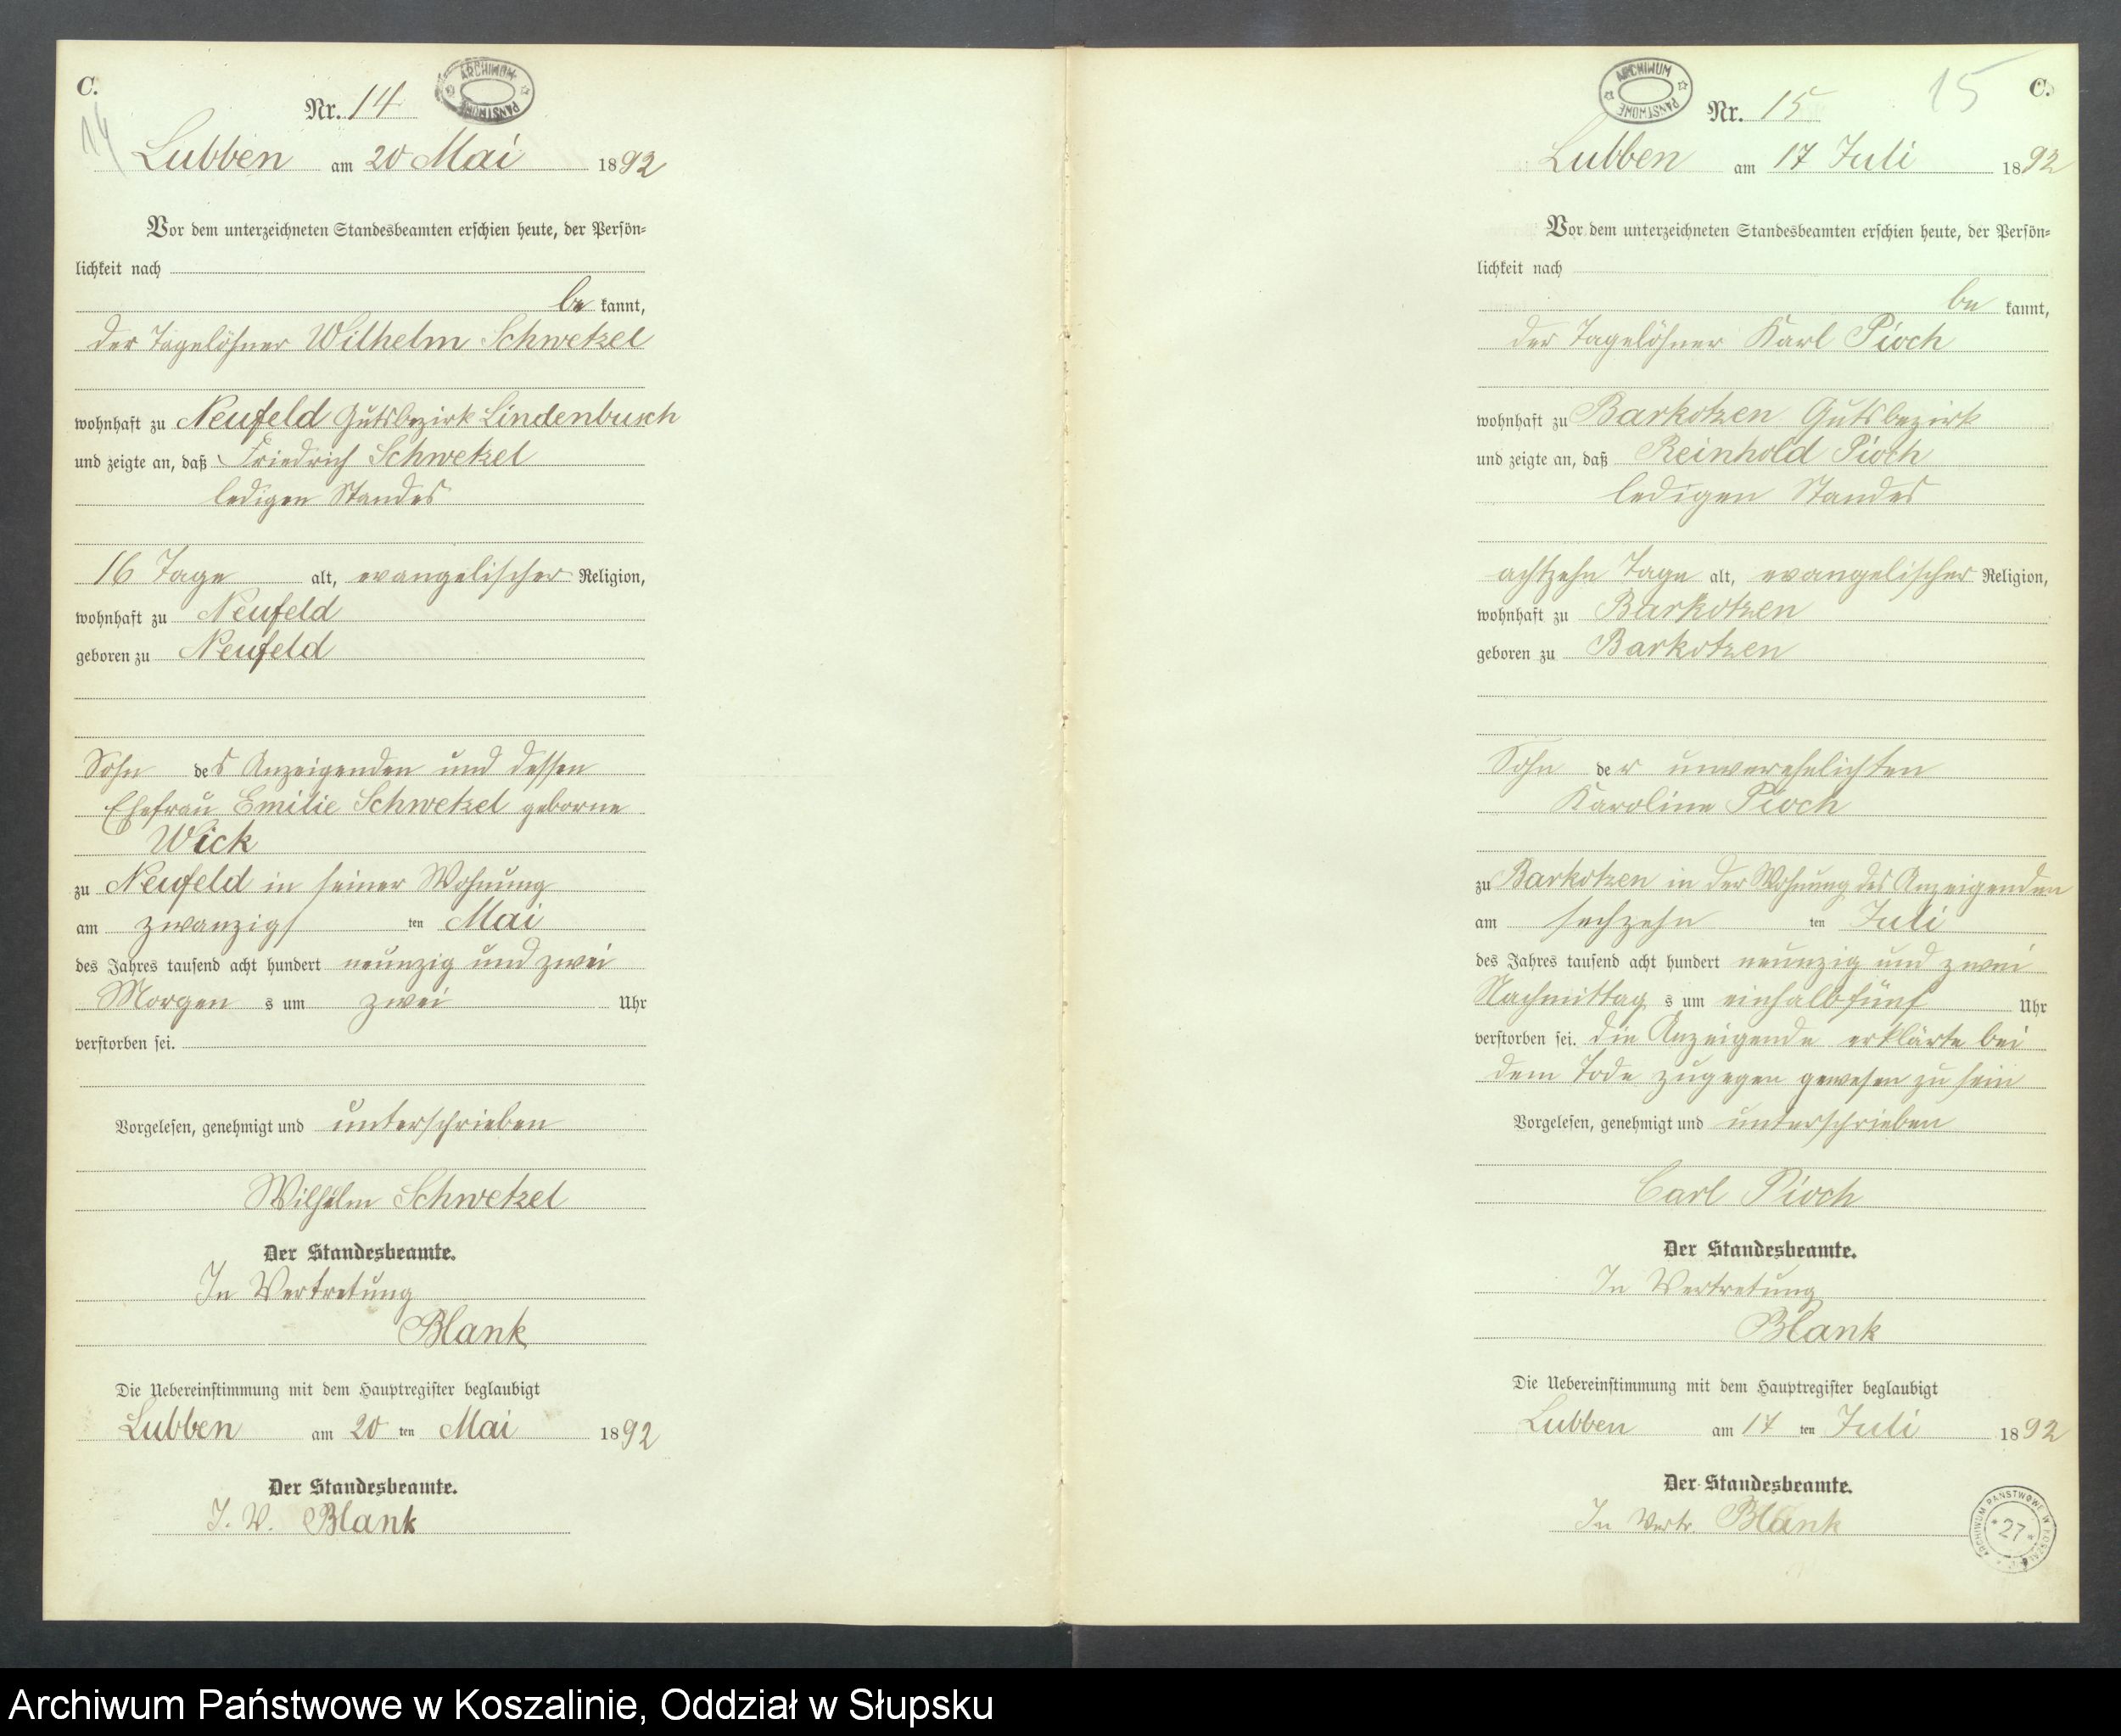 C.
14
Nr. 14
ARCHIWUM PAŃSTWOWE
Lubben am 20 Mai 1892
Vor dem unterzeichneten Standesbeamten erschien heute, der Persön=
lichkeit nach
be kannt,
der Tagelöhner Wilhelm Schwetzel
wohnhaft zu Neufeld Gutsbezirk Lindenbusch
und zeigte an, daß Friedrich Schwetzel
ledigen Standes
16 Tage alt, evangelischer Religion,
wohnhaft zu Neufeld
geboren zu Neufeld
Sohn des Anzeigenden und dessen
Ehefrau Emilie Schwetzel geborne
Wick
zu Neufeld in seiner Wohnung
am zwanzigsten Mai
des Jahres tausend acht hundert neunzig und zwei
Morgens um zwei Uhr
verstorben sei.
Vorgelesen, genehmigt und unterschrieben
Wilhelm Schwetzel
Der Standesbeamte.
In Vertretung
Blank
Die Uebereinstimmung mit dem Hauptregister beglaubigt
Lubben am 20 ten Mai 1892
Der Standesbeamte.
I. V. Blank
C.
15
Nr. 15
ARCHIWUM PAŃSTWOWE
Lubben am 17 Juli 1892
Vor dem unterzeichneten Standesbeamten erschien heute, der Persön=
lichkeit nach
be kannt,
der Tagelöhner Karl Pioch
wohnhaft zu Barkotzen Gutsbezirk
und zeigte an, daß Reinhold Pioch
ledigen Standes
achtzehn Tage alt, evangelischer Religion,
wohnhaft zu Barkotzen
geboren zu Barkotzen
Sohn der unverehelichten
Karoline Pioch
zu Barkotzen in der Wohnung des Anzeigenden
am sechzehn ten Juli
des Jahres tausend acht hundert neunzig und zwei
Nachmittags um einhalbfünf Uhr
verstorben sei. die Anzeigende erklärte bei
dem Tode zugegen gewesen zu sein
Vorgelesen, genehmigt und unterschrieben
Carl Pioch
Der Standesbeamte.
In Vertretung
Blank
Die Uebereinstimmung mit dem Hauptregister beglaubigt
Lubben am 17 ten Juli 1892
Der Standesbeamte.
In Vertr. Blank
ARCHIWUM PAŃSTWOWE W KOSZALINIE
* 27 *
Archiwum Państwowe w Koszalinie, Oddział w Słupsku